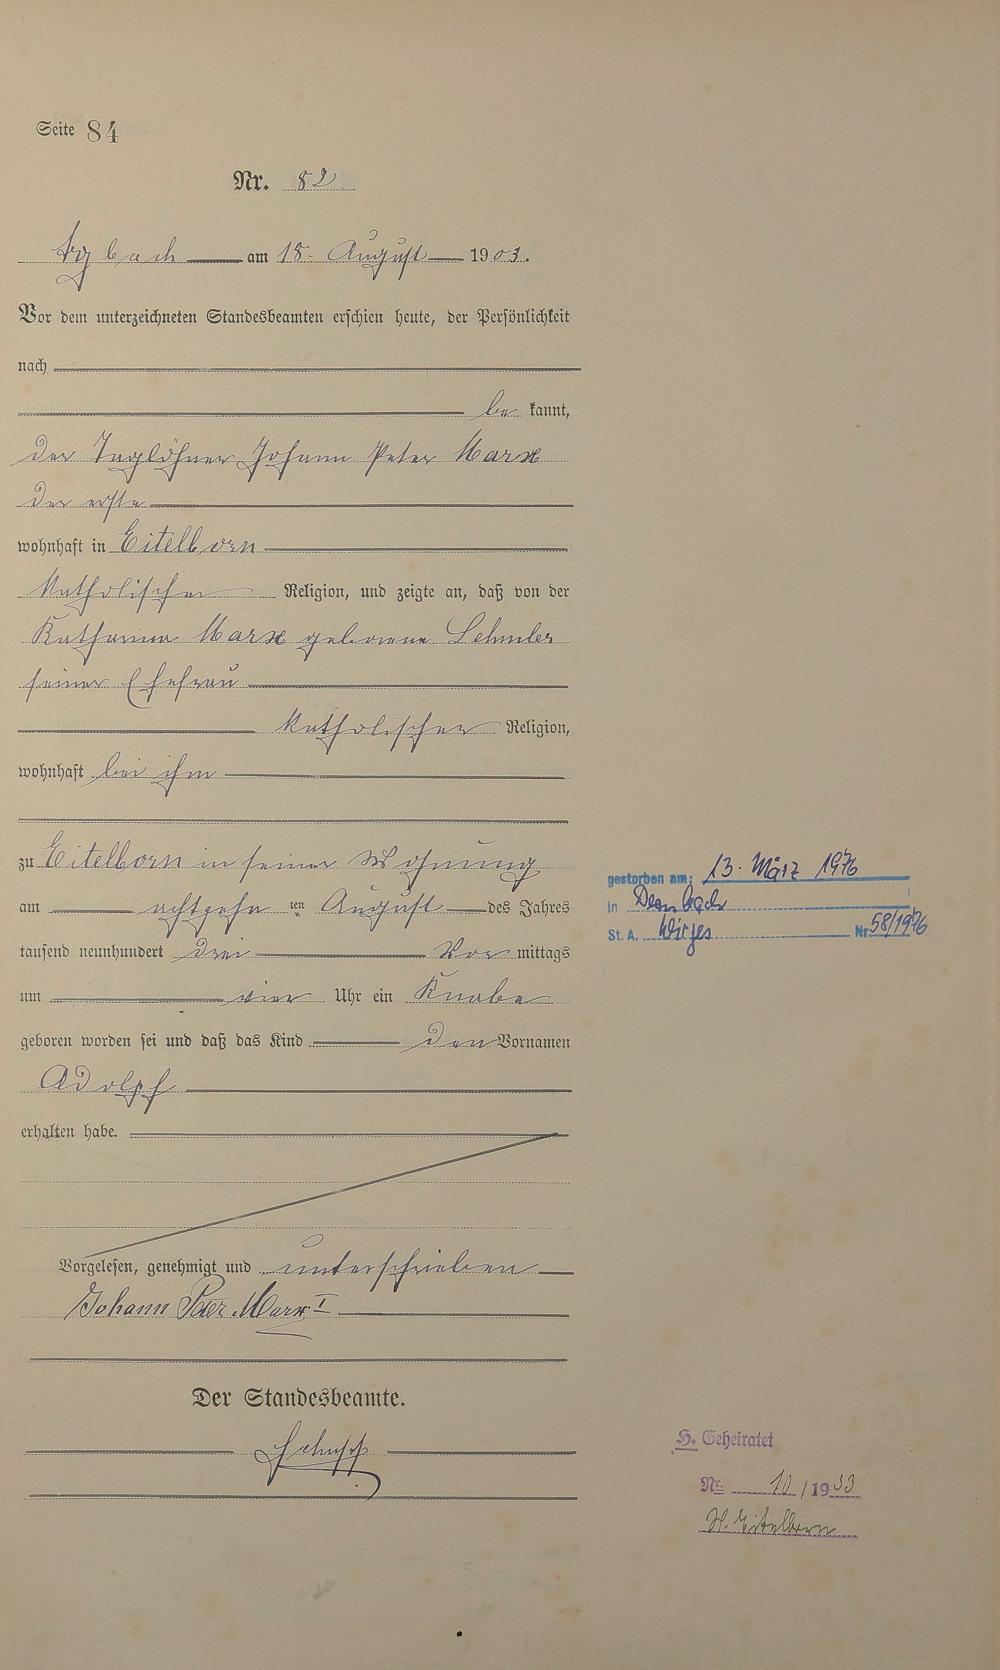 Seite 84
Nr. 82
Arzbach am 18. August 1903.
Vor dem unterzeichneten Standesbeamten erschien heute, der Persönlichkeit
nach
be kannt,
der Taglöhner Johann Peter Marx
der erste
wohnhaft in Eitelborn
katholischer Religion, und zeigte an, daß von der
Katharina Marx geborene Lehmler
seiner Ehefrau
katholischer Religion,
wohnhaft bei ihm
zu Eitelborn in seiner Wohnung
am achtzehn ten August des Jahres
tausend neunhundert drei Vor mittags
um vier Uhr ein Knabe
geboren worden sei und daß das Kind den Vornamen
Adolf
erhalten habe.
Vorgelesen, genehmigt und unterschrieben
Johann Peter Marx I
Der Standesbeamte.
gestorben am: 13. März 1976
in Dernbach
St. A. Wirges Nr 58/1976
H. Geheiratet
Nr. 10/1933
St. Eitelborn